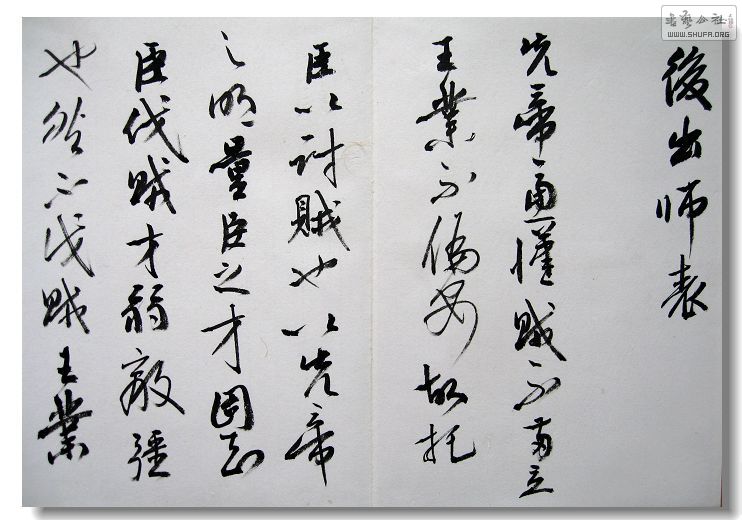 後出師表
先帝慮漢賊不兩立
王業不偏安故托
臣以討賊也以先帝
之明量臣之才固知
臣伐賊才弱敵彊
也然不伐賊王業
书艺公社
WWW.SHUFA.ORG